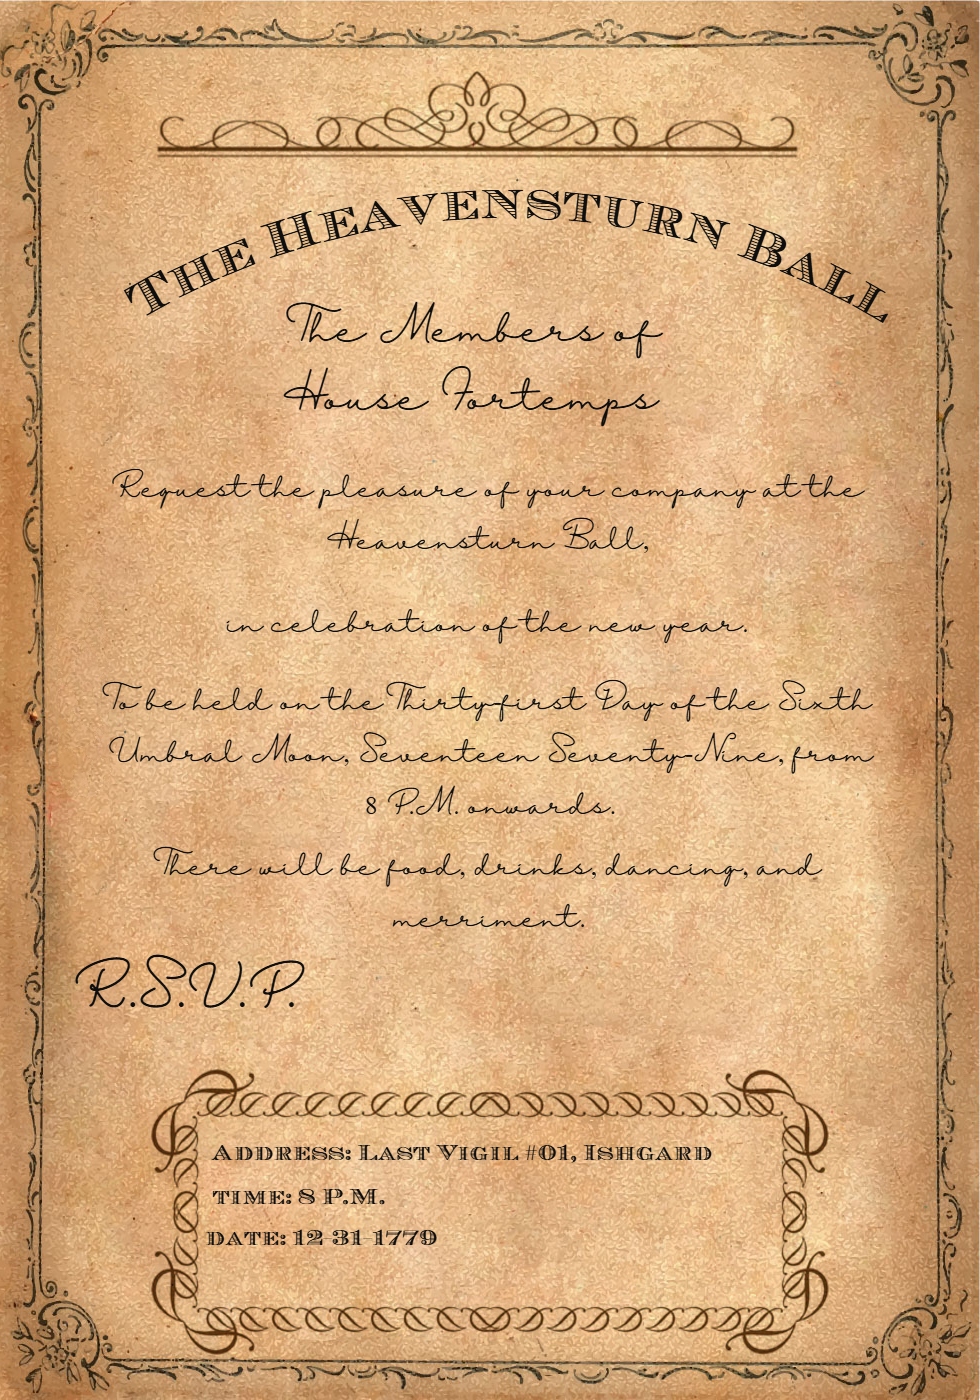 The Heavensturn Ball
The Members of
House Fortemps
Request the pleasure of your company at the
Heavensturn Ball,
in celebration of the new year.
To be held on the Thirty-first Day of the Sixth
Umbral Moon, Seventeen Seventy-Nine, from
8 P.M. onwards.
There will be food, drinks, dancing, and
merriment.
R.S.V.P.
Address: Last Vigil #01, Ishgard
time: 8 P.M.
date: 12-31-1779